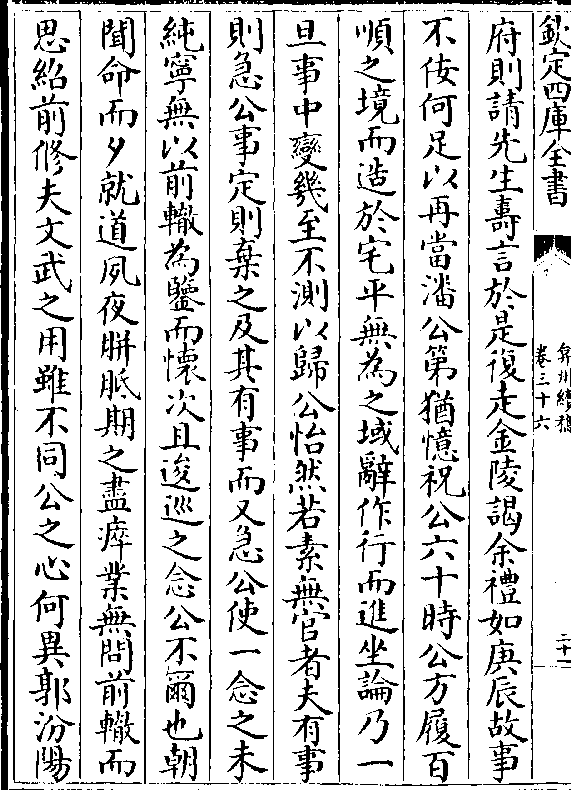 欽定四庫全書
弇州續稿
卷三十六
二十一
府則請先生壽言於是復走金陵謁余禮如庚辰故事
不佞何足以再當潘公第猶憶祝公六十時公方履百
順之境而造於宅平無為之域辭作行而進坐論乃一
旦事中變幾至不測以歸公怡然若素無官者夫有事
則急公事定則棄之及其有事而又急公使一念之未
純寧無以前轍為鑒而懷次且逡巡之念公不爾也朝
聞命而夕就道夙夜胼胝期之盡瘁業無問前轍而
思紹前修夫文武之用雖不同公之心何異郭汾陽